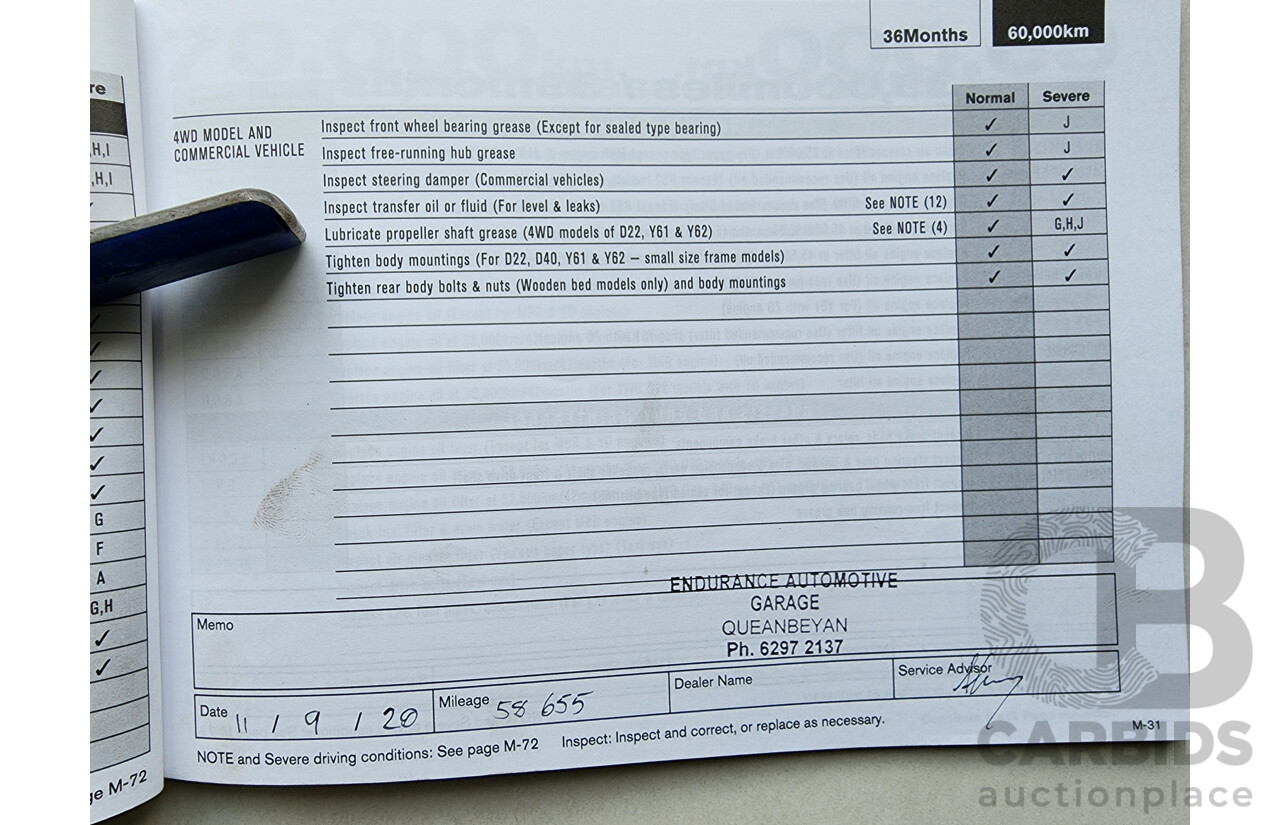 36Months 60,000km
Normal Severe
4WD MODEL AND
COMMERCIAL VEHICLE
Inspect front wheel bearing grease (Except for sealed type bearing) ✓ J
Inspect free-running hub grease ✓ J
Inspect steering damper (Commercial vehicles) ✓ ✓
Inspect transfer oil or fluid (For level & leaks) See NOTE (12) ✓ ✓
Lubricate propeller shaft grease (4WD models of D22, Y61 & Y62) See NOTE (4) ✓ G,H,J
Tighten body mountings (For D22, D40, Y61 & Y62 – small size frame models) ✓ ✓
Tighten rear body bolts & nuts (Wooden bed models only) and body mountings ✓ ✓
re
,H,I
,H,I
✓
✓
✓
✓
✓
✓
✓
G
F
A
G,H
✓
✓
ge M-72
ENDURANCE AUTOMOTIVE
GARAGE
QUEANBEYAN
Ph. 6297 2137
Memo
Date 11 / 9 / 20 Mileage 58 655 Dealer Name Service Advisor
NOTE and Severe driving conditions: See page M-72 Inspect: Inspect and correct, or replace as necessary.
M-31
CB
CARBIDS
auctionplace